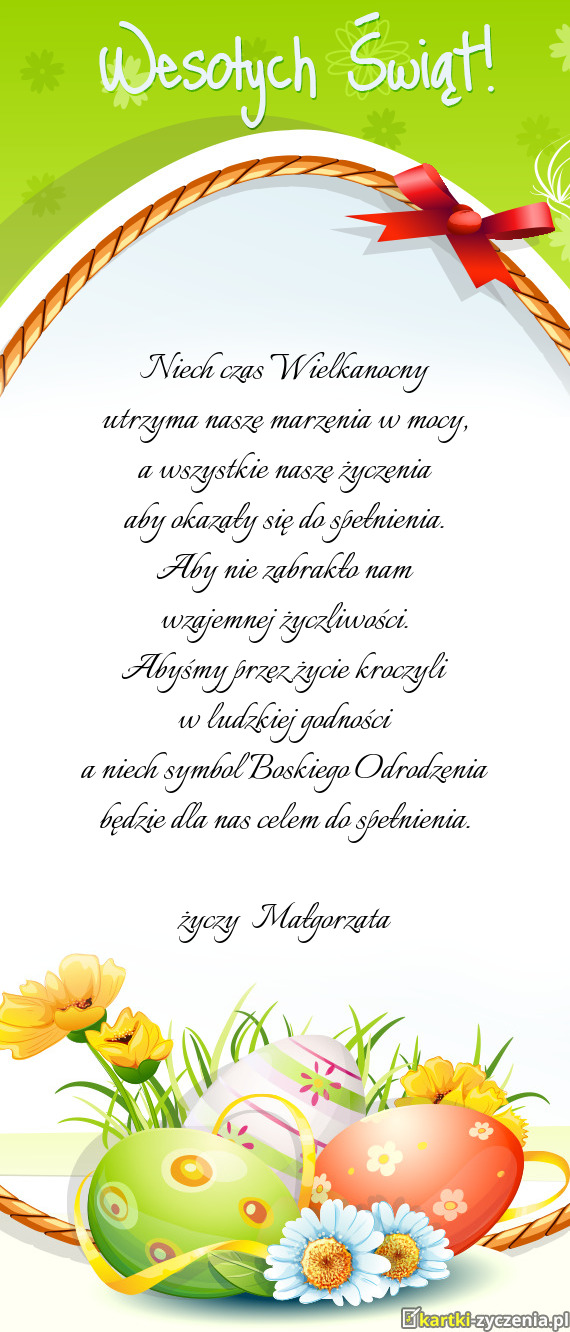 Wesołych Świąt!
Niech czas Wielkanocny
utrzyma nasze marzenia w mocy,
a wszystkie nasze życzenia
aby okazały się do spełnienia.
Aby nie zabrakło nam
wzajemnej życzliwości.
Abyśmy przez życie kroczyli
w ludzkiej godności
a niech symbol Boskiego Odrodzenia
będzie dla nas celem do spełnienia.
życzy Małgorzata
kartki-zyczenia.pl